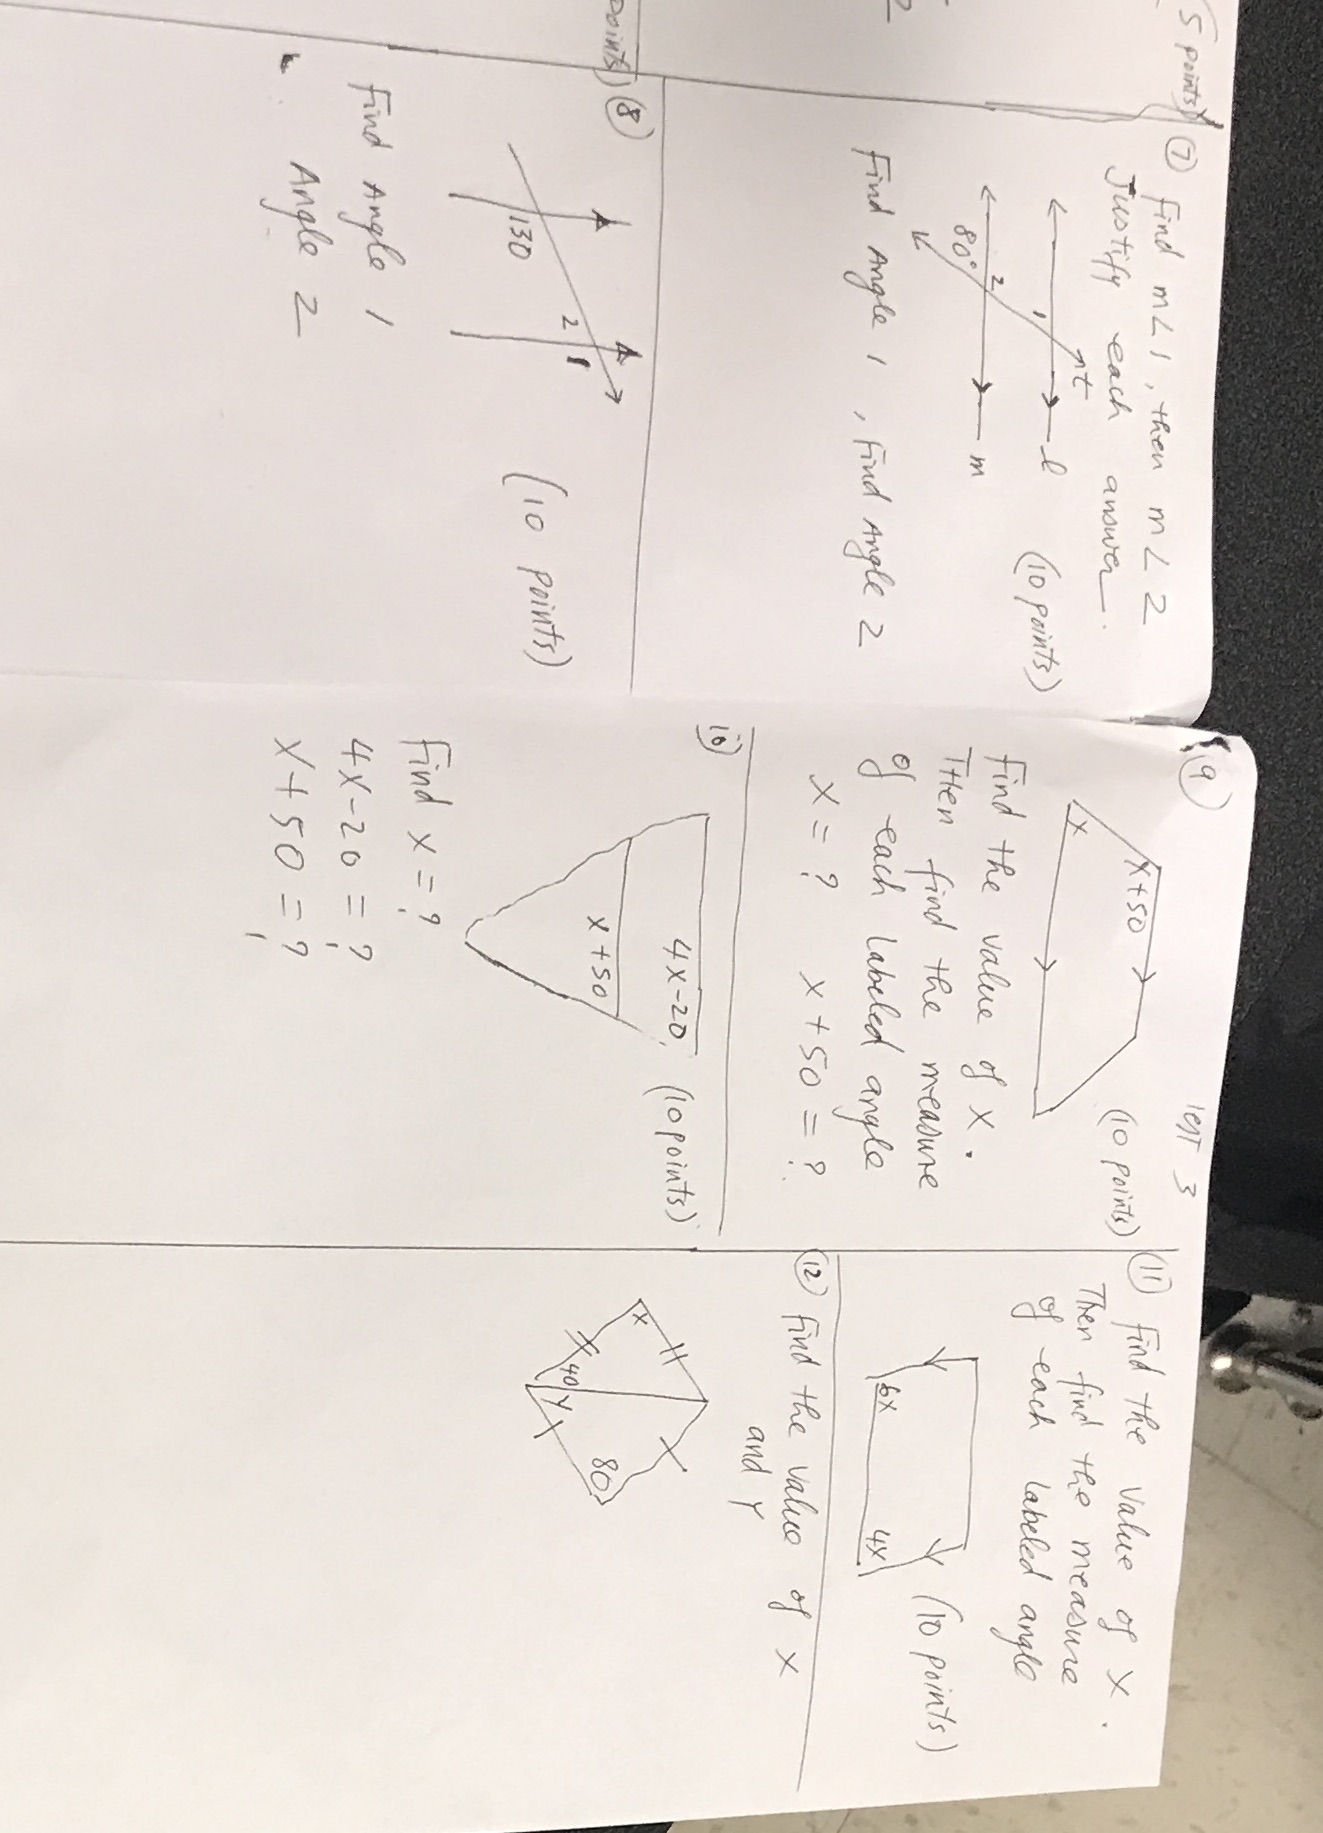 (5 points)
2
points)
⑦ Find m∠1, then m∠2
Justify each answer.
t
1
l
(10 points)
2
80°
m
Find Angle 1, find Angle 2
⑧
130
2
1
(10 points)
Find Angle 1
Angle 2
Test 3
⑨
(10 points)
x+50
x
Find the value of x.
Then find the measure
of each labeled angle
x = ? x + 50 = ?
⑩
4x-20
(10 points)
x+50
Find x = ?
4x-20 = ?
x+50 = ?
⑪ Find the value of x.
Then find the measure
of each labeled angle
(10 points)
6x
4x
⑫ Find the value of x
and y
x
40
y
80